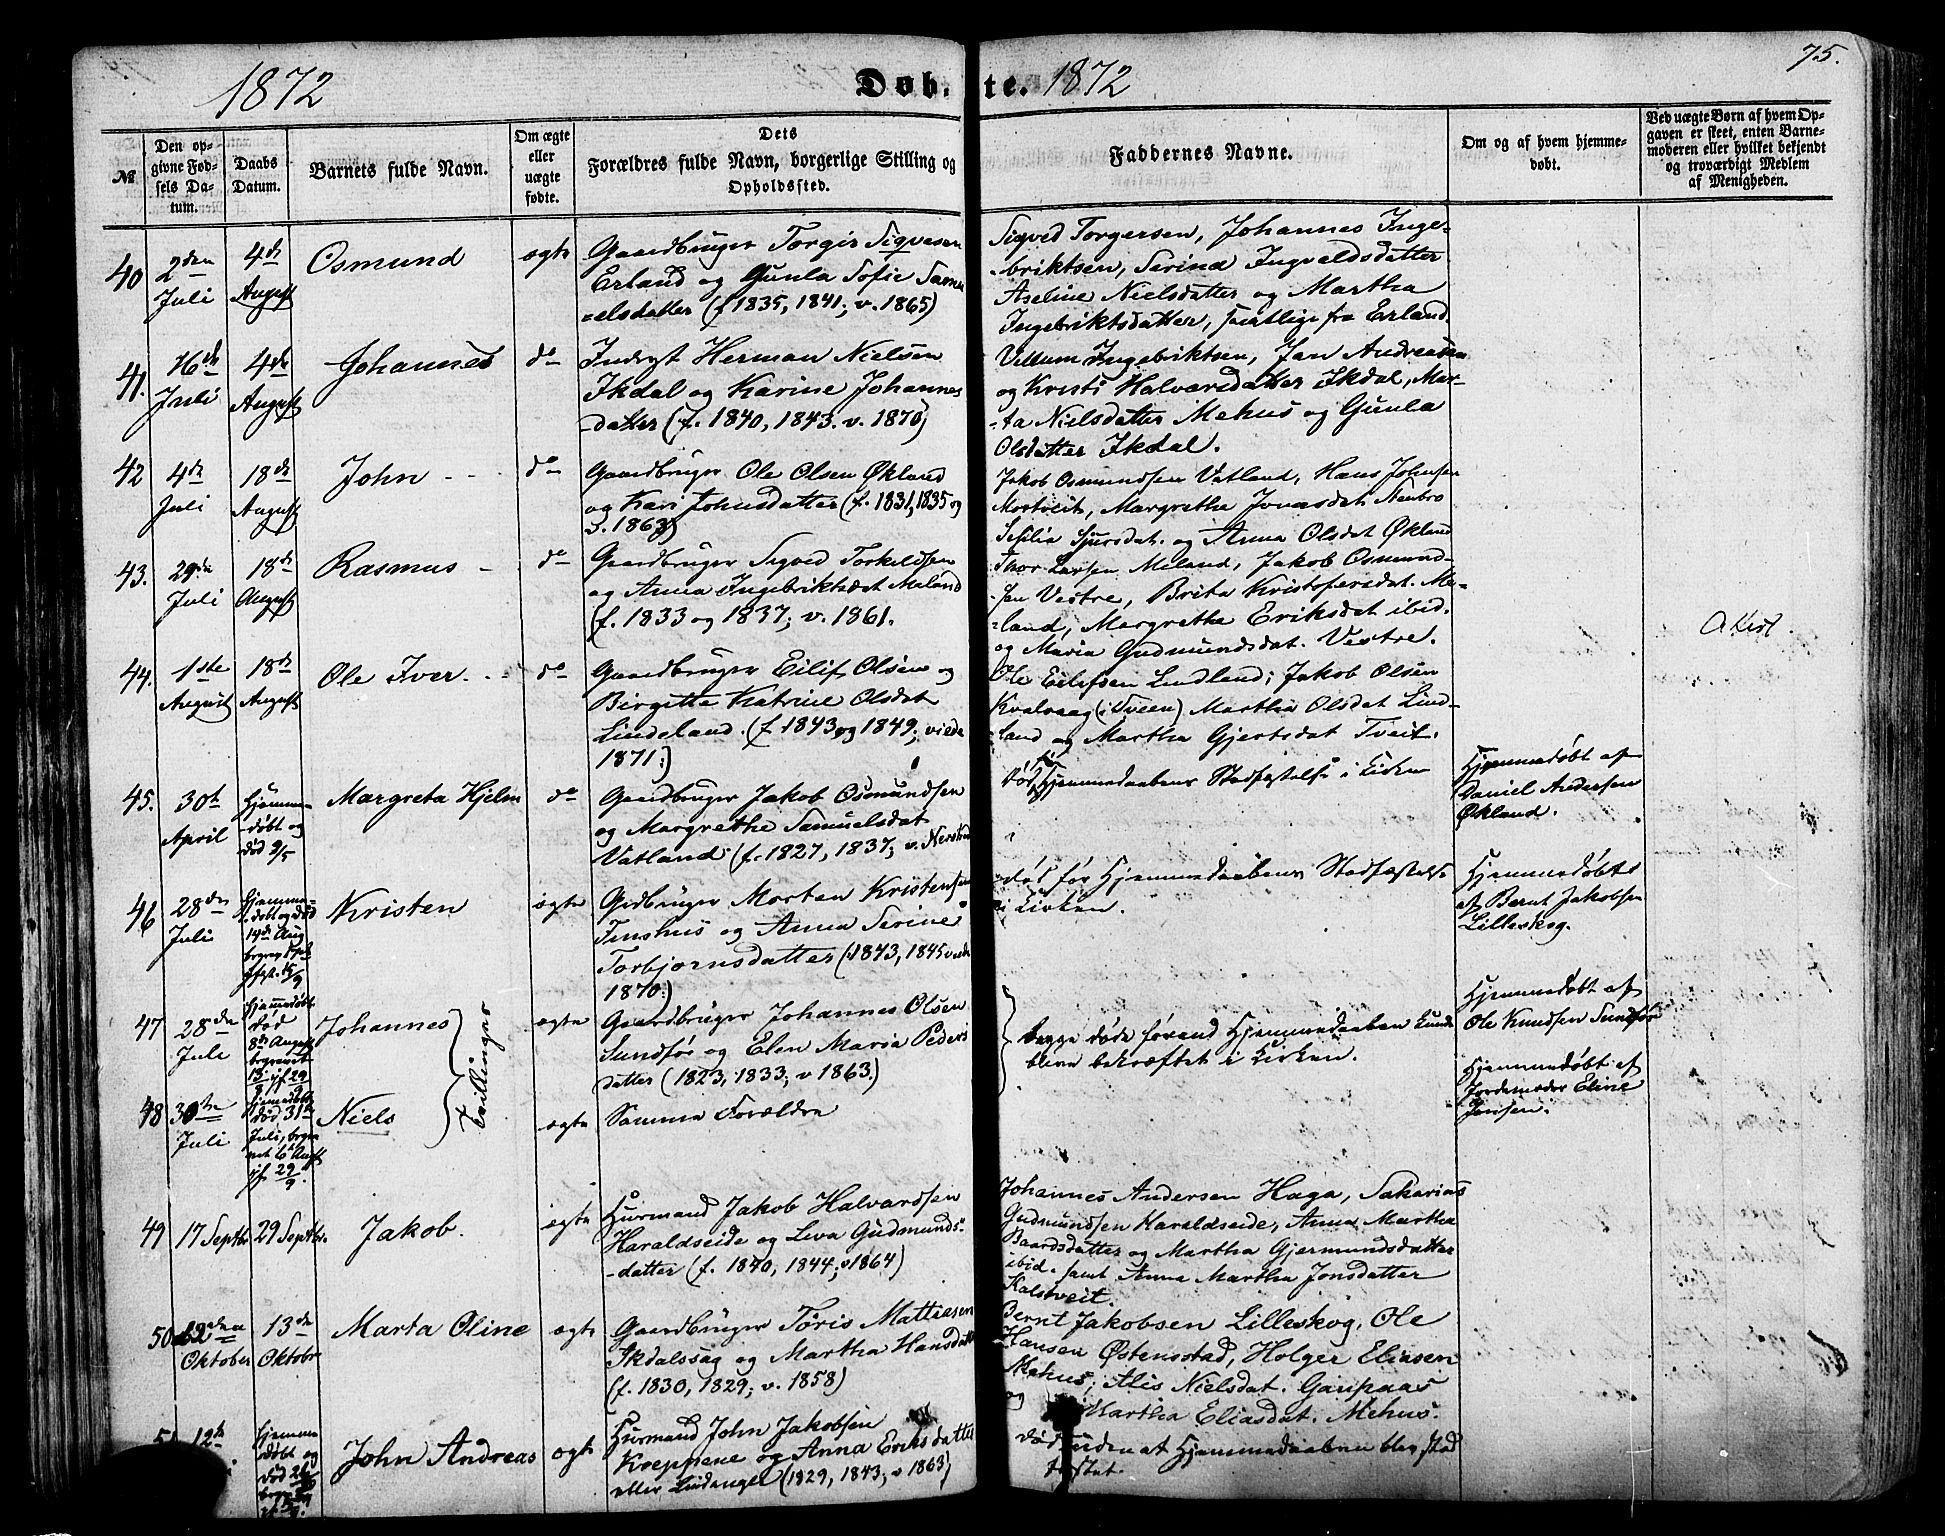 1872
Døbte. 1872
75.
№
Den opgivne Fødsels Datum.
Daabs Datum.
Barnets fulde Navn.
Om ægte eller uægte fødte.
Dets Forældres fulde Navn, borgerlige Stilling og Opholdssted.
Faddernes Navne.
Om og af hvem hjemmedøbt.
Ved uægte Børn af hvem Opgaven er skeet, enten Barnemoderen eller hvilket bekjendt og troværdigt Medlem af Menigheden.
40
2den Juli
4de August
Osmund
ægte
Gaardbruger Torgir Sigvesen
Erland og Gunla Sofie Samu
-elsdatter (f 1835, 1841; v. 1865)
Sigved Torgersen, Johannes Inge-
-briktsen, Serina Ingvaldsdatter
Aseline Nielsdatter og Martha
Ingebriktsdatter, samtlige fra Erland.
41.
16de Juli
4de August
Johannes
do
Inderst Herman Nielsen
Ikdal og Karine Johannes
-datter (f. 1840, 1843. v. 1870)
Villum Ingebriktsen, Jan Andreasen
og Kristi Halvorsdatter Ikdal, Mar-
-ta Nielsdatter Mehus og Gunla
Olsdatter Ikdal.
42
4de Juli
18de August
John
do
Gaardbruger Ole Olsen Økland
og Kari Johnsdatter (f. 1831, 1835 og
v. 1863)
Jakob Osmundsen Vatland, Hans Johnsen
Mortveit, Margretha Jonasdat Stenbro
Sesilia Sjursdat. og Anna Olsdat Økland
43.
29de Juli
18de August
Rasmus
do
Gaardbruger Sigved Torkeldsen
og Anna Ingebriktsdat Meland
(f. 1833 og 1837; v. 1861.
Thor Larsen Meland, Jakob Osmund-
-sen Vestre, Brita Kristofersdat. Me-
-land, Margretha Eriksdat ibid.
og Maria Gudmundsdat. Vestre.
44.
1ste August
18de August
Ole Iver
do
Gaardbruger Eilif Olsen og
Birgitte Katrine Olsdat
Lindeland. (f 1843 og 1849; viede
1871.)
Ole Eilefsen Lindland; Jakob Olsen
Kvalvaag (i Tveen) Martha Olsdat Lind-
-land og Martha Gjertsdat Tveit.
45.
30te April
Hjemme-
-døbt og
død 9/5
Margreta Hjelm
do
Gaardbruger Jakob Osmundsen
og Margrethe Samuelsdat
Vatland (f. 1827, 1837; v.
Død før Hjemmedaabens Stadfæstelse i Kirken
Hjemmedøbt af
Daniel Andersen
Økland.
46
28de Juli
Hjemme-
døbt og død
14de Aug
Kristen
ægte
Gdbruger Morten Kristensen
Tinshus og Anna Serine
Torbjornsdatter (1843, 1845 viede
1870.)
død før Hjemmedaabens Stadfæstelse
i Kirken.
Hjemmedøbt
af Bernt Jakobsen
Lilleskog.
47
28de Juli
Hjemmedøbt
død
8de August
begravet
Johannes
Tvillinger
ægte
Gaardbruger Johannes Olsen
Sundfør og Elen Maria Peders
datter (1823, 1833; v 1863.)
begge døde førend Hjemmedaaben kunde
blive bekræftet i Kirken.
Hjemmedøbt af
Ole Knudsen Sundfør
48
30te Juli
Hjemmedøbt
død 31te
Juli, begra
vet 6te Augst
jf 29/9.
Niels
ægte
Samme Forældre
Hjemmedøbt af
Jordemoder Eline
Jansen.
49
17 Septbr
29 Septbr.
Jakob.
ægte
Huusmand Jakob Halvardsen
Haraldseide og Leva Gudmunds-
-datter (f. 1840, 1844; v 1864)
Johannes Andersen Haga, Sakarias
Gudmundsen Haraldseide, Anna Martha
Baardsdatter og Martha Gjermundsdatter
ibid. samt Anna Martha Jonsdatter
Kalstveit.
50
Oktober
13de Oktobr
Marta Oline
ægte
Gaardbruger Tøris Mathiasen
Ikdalssag og Martha Hansdatt
(f. 1830, 1829; v. 1858)
Bernt Jakobsen Lilleskog, Ole
Hansen Østensstad, Holger Eliasen
Mehus; Alis Nielsdat. Garpaas
og Martha Eliasdat. Mehus.
51
12te
Hjemme
døbt og
død
John Andreas
ægte
Huusmand John Jakobsen
Kroeppene og Anna Eriksdatter
eller Lindanger (1829, 1843; v 1863)
død uden at Hjemmedaaben blev stad
fæstet.